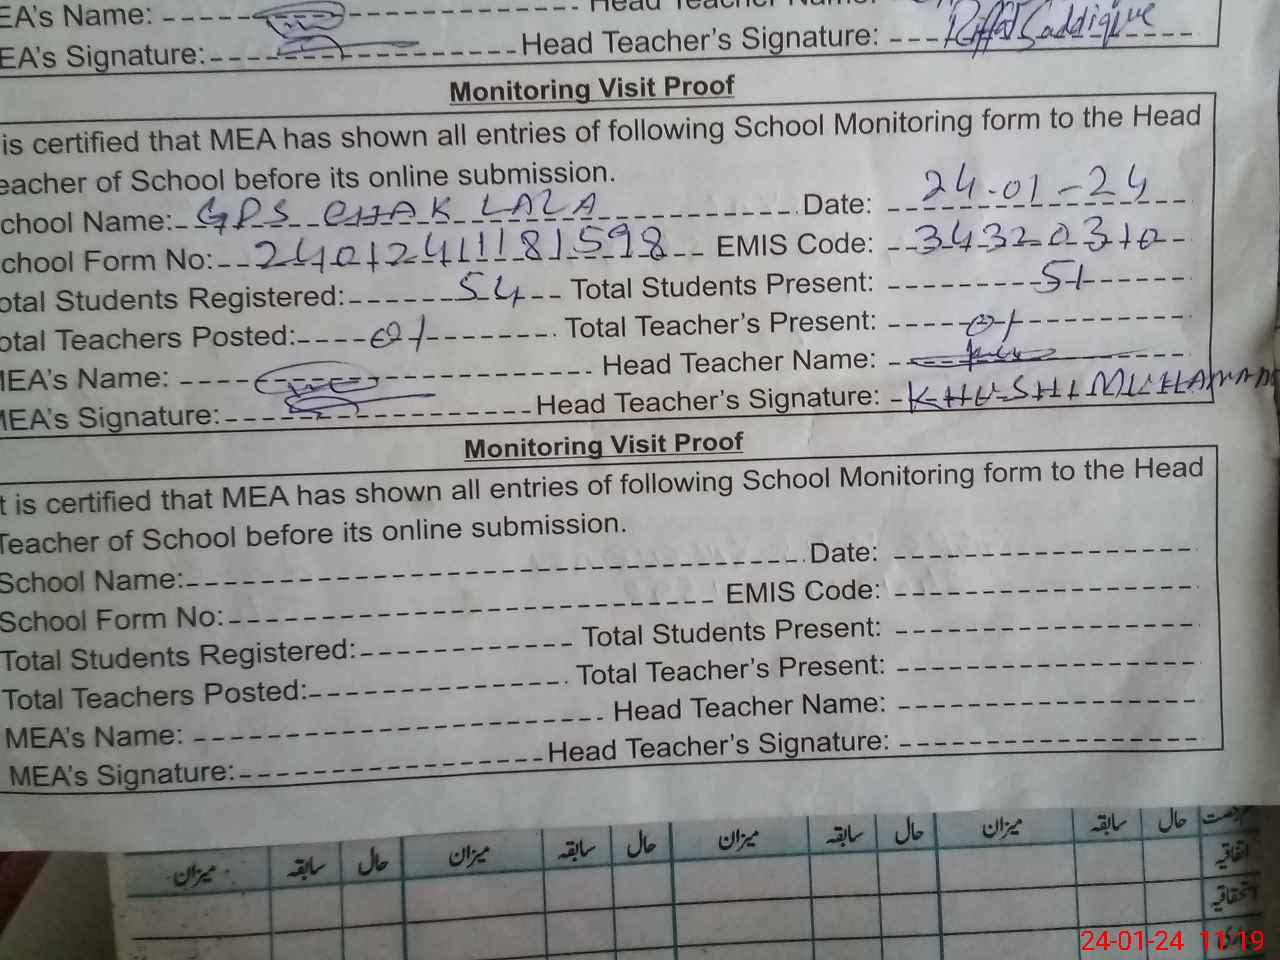 EA's Name: Head Teacher Name:
EA's Signature: Head Teacher's Signature: Riffat Saddique
Monitoring Visit Proof
is certified that MEA has shown all entries of following School Monitoring form to the Head
eacher of School before its online submission.
chool Name: GPS CHAK LALA Date: 24-01-24
chool Form No: 240124111181598 EMIS Code: 34320310
otal Students Registered: 54 Total Students Present: 51
otal Teachers Posted: 01 Total Teacher's Present: 01
MEA's Name: Head Teacher Name:
MEA's Signature: Head Teacher's Signature: KHUSHI MUHAMMAD
Monitoring Visit Proof
t is certified that MEA has shown all entries of following School Monitoring form to the Head
Teacher of School before its online submission.
School Name: Date:
School Form No: EMIS Code:
Total Students Registered: Total Students Present:
Total Teachers Posted: Total Teacher's Present:
MEA's Name: Head Teacher Name:
MEA's Signature: Head Teacher's Signature:
حال سابقہ میزان حال سابقہ میزان حال سابقہ میزان حال سابقہ میزان
اتفاقیہ
استحقاقیہ
24-01-24 11:19